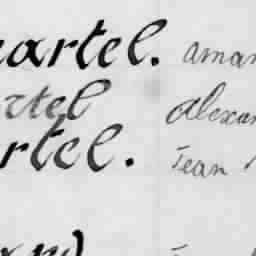 artel. aman
rtel alexan
rtel. Jean